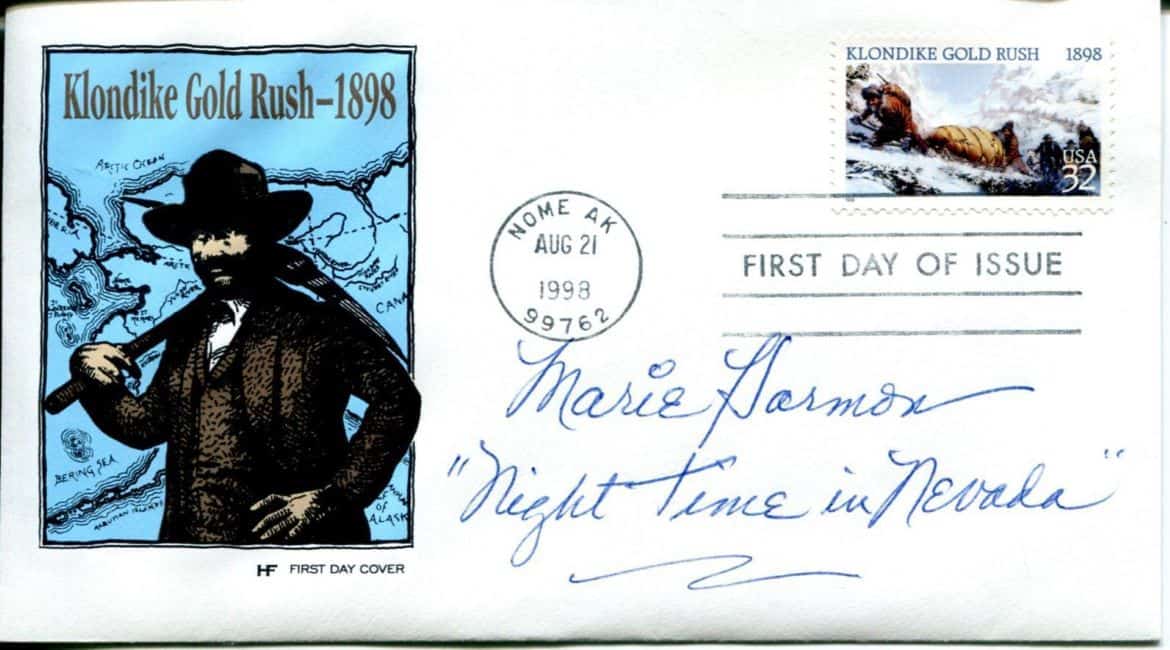 Klondike Gold Rush–1898
ARCTIC OCEAN
CANA
BERING SEA
ALEUTIAN ISLANDS
OF
ALASK
HF FIRST DAY COVER
KLONDIKE GOLD RUSH 1898
USA
32
NOME AK
AUG 21
1998
99762
FIRST DAY OF ISSUE
Marie Harmon
"Night Time in Nevada"